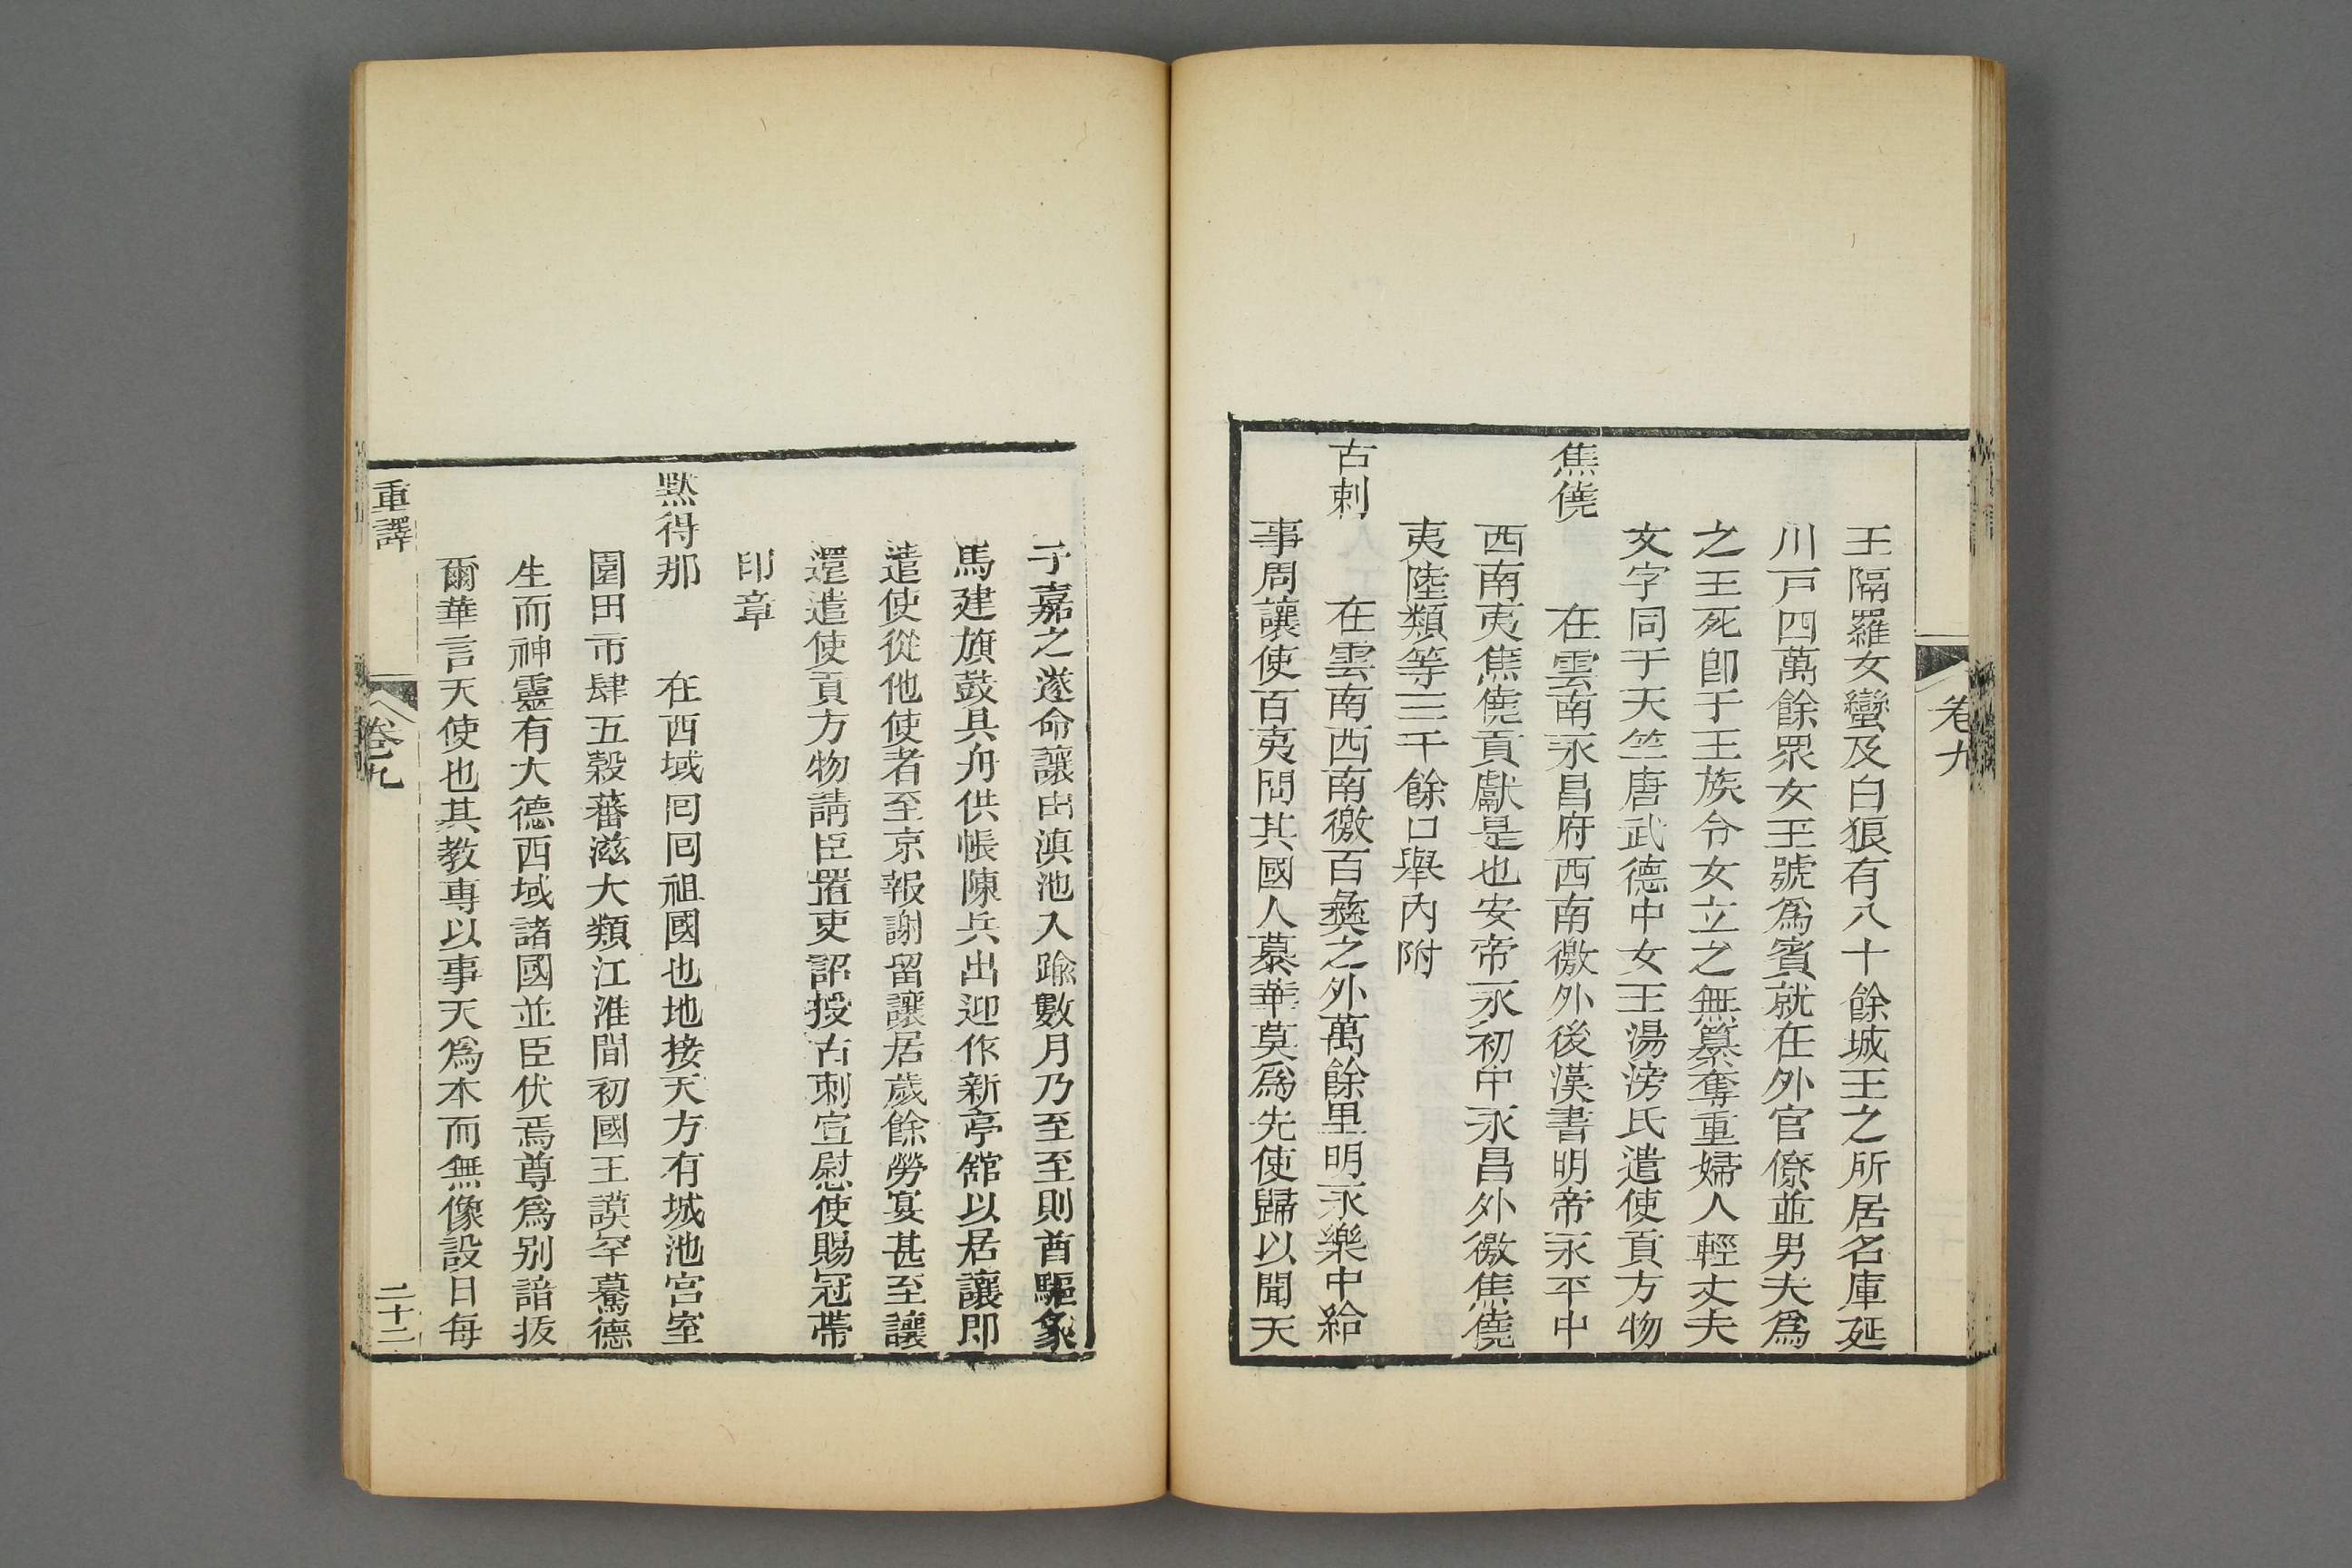 卷九
王隔羅女蠻及白狼有八十餘城王之所居名庫延
川戸四萬餘眾女王號爲賓就在外官僚並男夫爲
之王死卽于王族令女立之無篡奪重婦人輕丈夫
文字同于天竺唐武德中女王湯滂氏遣使貢方物
焦僥　　在雲南永昌府西南徼外後漢書明帝永平中
西南夷焦僥貢獻是也安帝永初中永昌外徼焦僥
夷陸類等三千餘口舉內附
古刺　　在雲南西南徼百彝之外萬餘里明永樂中給
事周讓使百夷問其國人慕華莫爲先使歸以聞天
子嘉之遂命讓出滇池入踰數月乃至至則酋驅象
馬建旗鼓具舟供帳陳兵出迎作新亭舘以居讓即
遣使從他使者至京報謝留讓居歲餘勞宴甚至讓
還遣使貢方物請臣置吏詔授古刺宣慰使賜冠帶
印章
黙得那　　在西域囘囘祖國也地接天方有城池宮室
園田市肆五穀蕃滋大類江淮間初國王謨罕驀德
生而神靈有大德西域諸國並臣伏焉尊爲别諳拔
爾華言天使也其教專以事天爲本而無像設日每
重譯　卷九　二十二